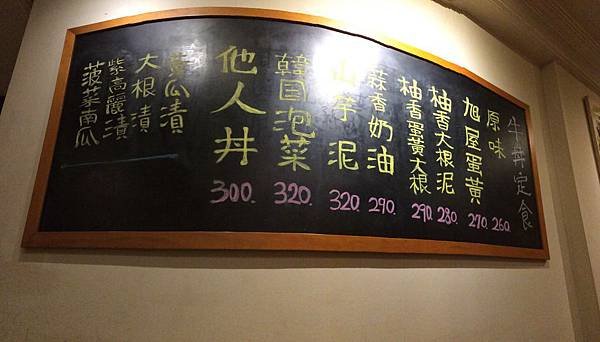 牛丼定食
原味 260.
旭屋蛋黃 270.
柚香大根泥 280.
柚香蛋黃大根 290.
蒜香奶油 290.
山芋泥 320.
韓国泡菜 320.
他人丼 300.
黃瓜漬
大根漬
紫高麗漬
菠菜南瓜